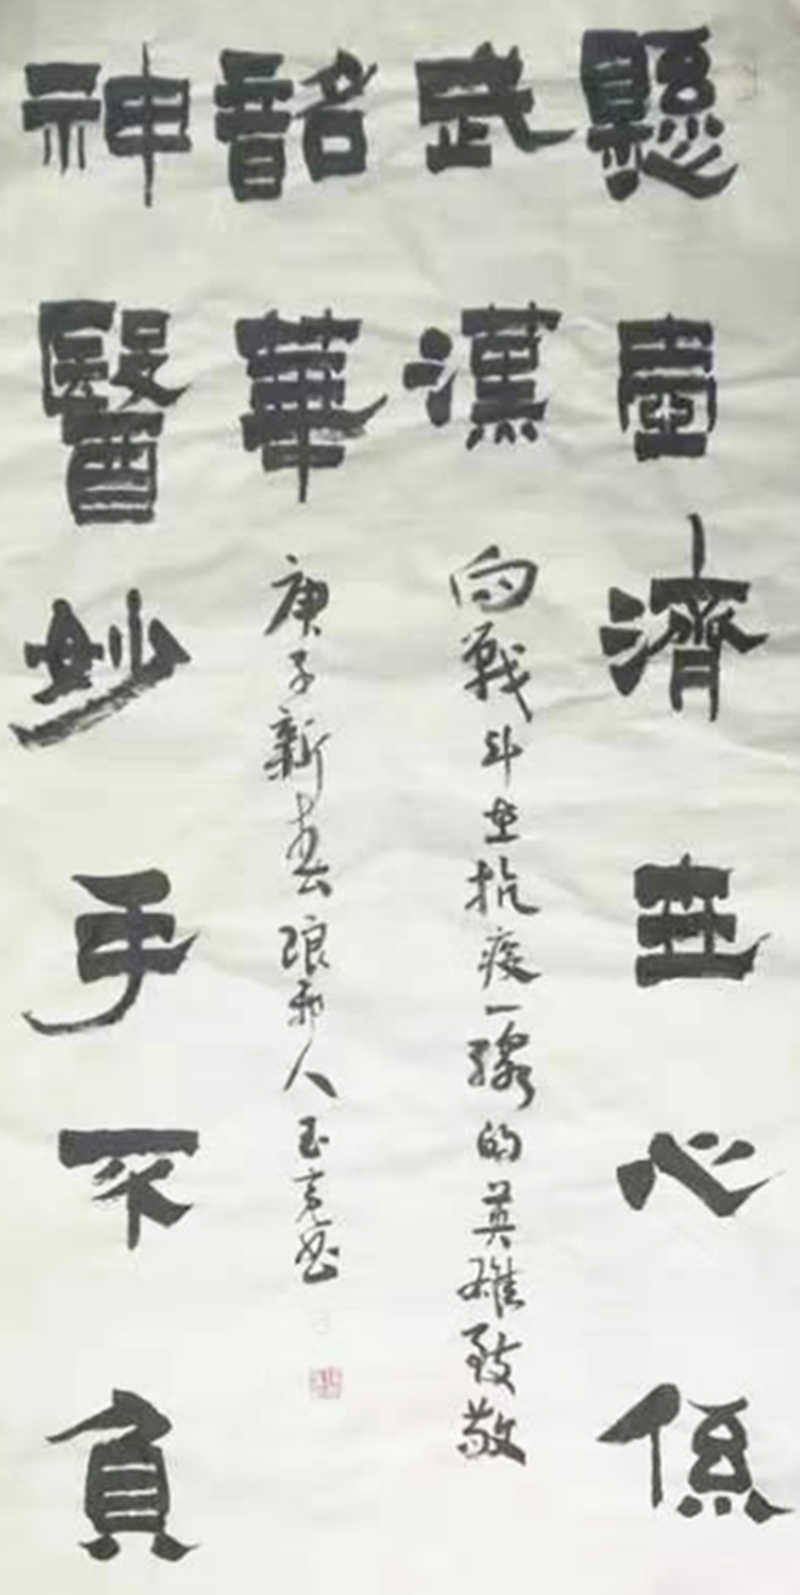 懸壺濟世心係
武漢
神醫妙手不負
韶華
向戰斗在抗疫一線的英雄致敬
庚子新春琅邪人玉亮書